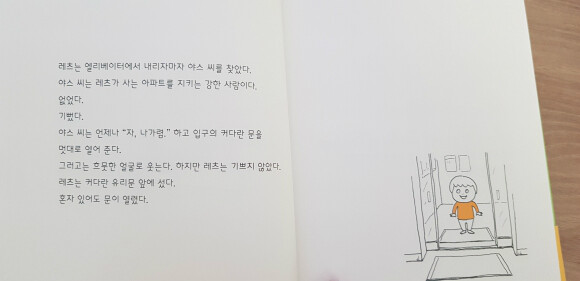 레츠는 엘리베이터에서 내리자마자 야스 씨를 찾았다.
야스 씨는 레츠가 사는 아파트를 지키는 강한 사람이다.
없었다.
기뻤다.
야스 씨는 언제나 “자, 나가렴.” 하고 입구의 커다란 문을
멋대로 열어 준다.
그러고는 흐뭇한 얼굴로 웃는다. 하지만 레츠는 기쁘지 않았다.
레츠는 커다란 유리문 앞에 섰다.
혼자 있어도 문이 열렸다.